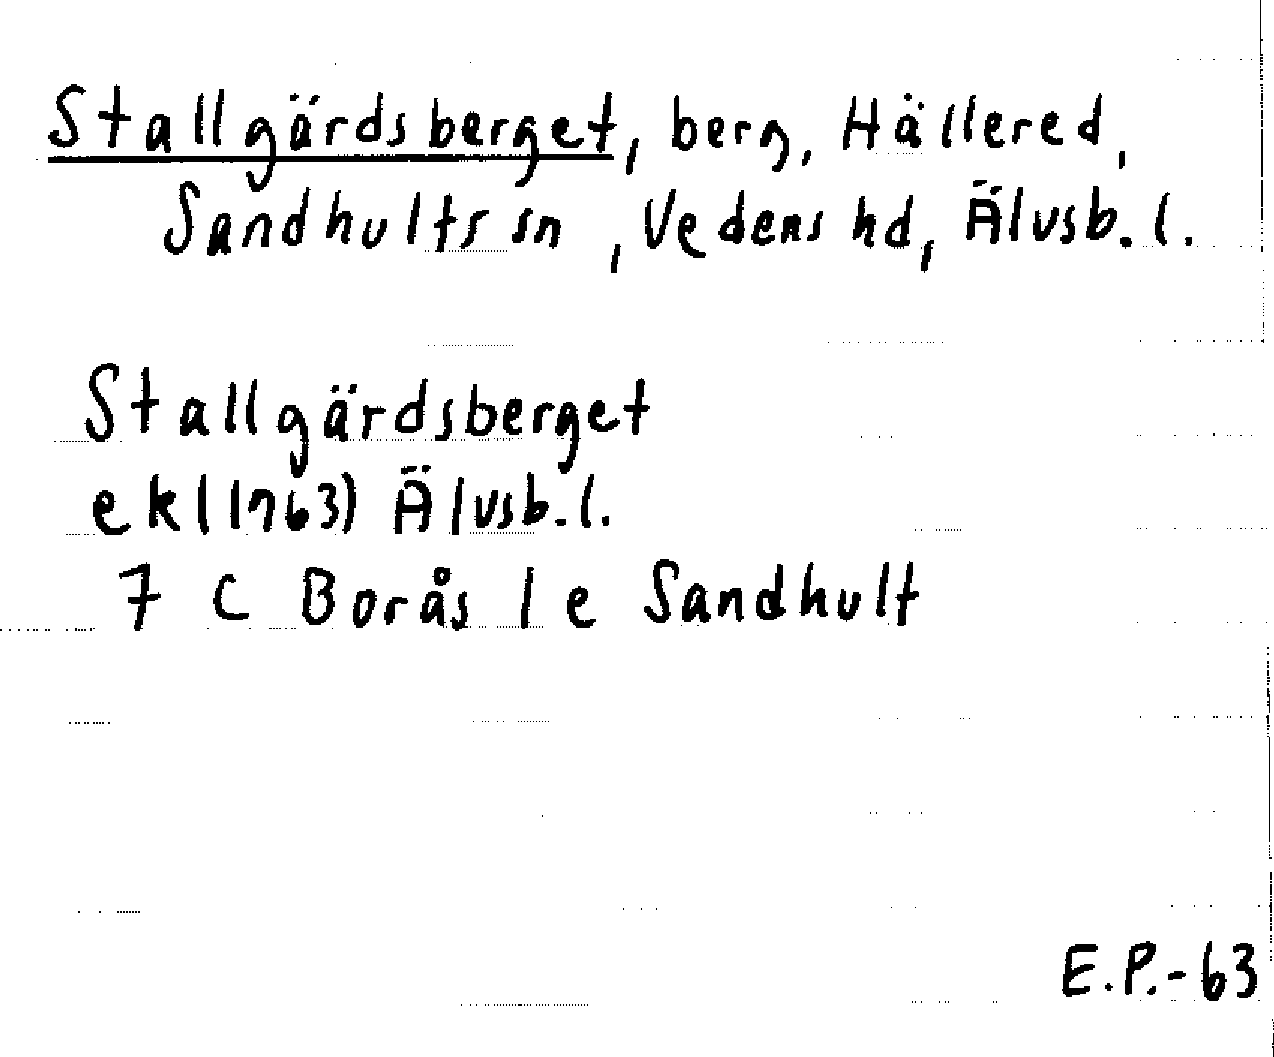 Stallgärdsberget, berg, Hällered,
Sandhults sn, Vedens hd, Älvsb. l.
Stallgärdsberget
ekl (1963) Älvsb. l.
7 C Borås 1 e Sandhult
E.P.-63